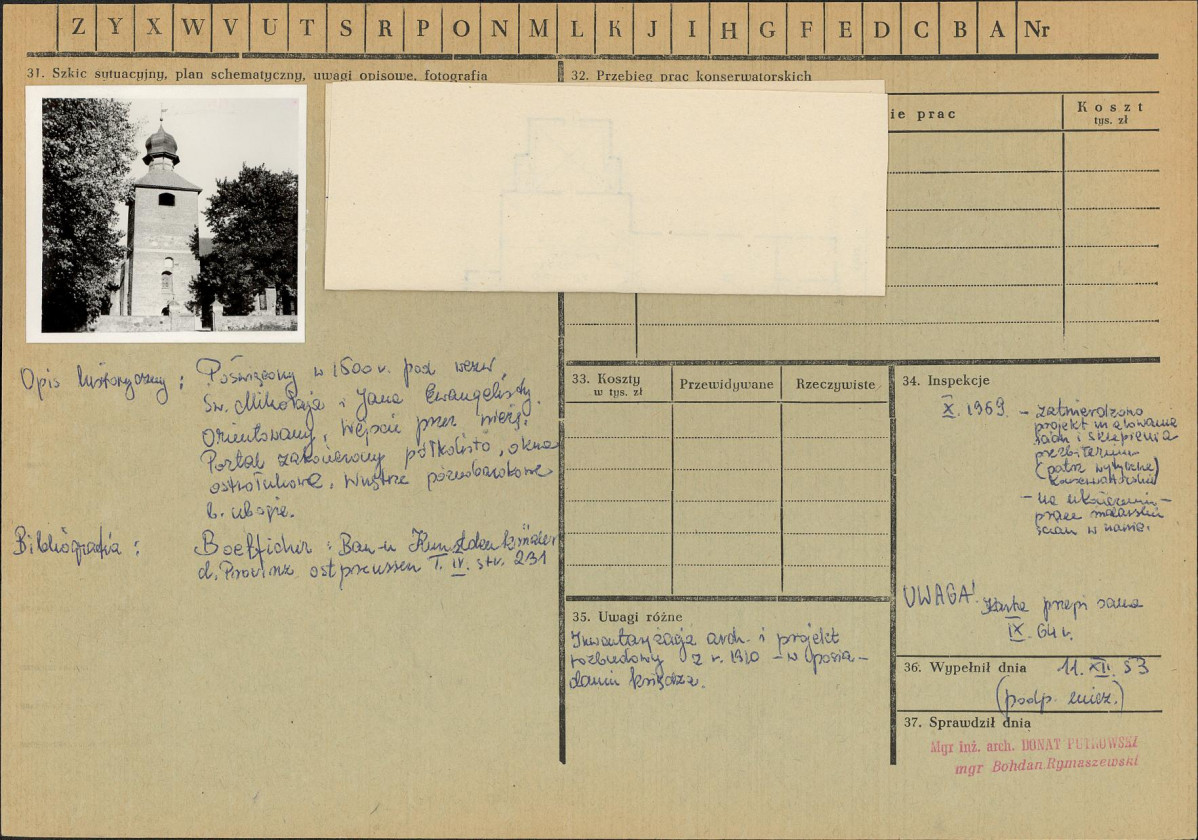 Z Y X W V U T S R P O N M L K J I H G F E D C B A Nr
31. Szkic sytuacyjny, plan schematyczny, uwagi opisowe, fotografia
32. Przebieg prac konserwatorskich
ie prac
Koszt
tys. zł
Opis historyczny : Poświęcony w 1500 r. pod wezw.
Św. Mikołaja i Jana Ewangelisty.
Orientowany, wejście przez wieżę.
Portal zakończony półkolisto, okna
ostrołukowe. Wnętrze późnobarokowe
b. uboje.
Bibliografia : Boetticher : Bau-u Kunstdenkmäler
d. Provinz ostpreussen T. IV. str. 231
33. Koszty
w tys. zł
Przewidywane
Rzeczywiste
34. Inspekcje
X. 1969. – zatwierdzono
projekt malowania
ścian i sklepienia
prezbiterium
(patrz wytyczne
konserwatorskie)
– na ukończeniu –
prace malarskie
ścian w nawie.
UWAGA! Karta przepisana
IX. 64 r.
35. Uwagi różne
Inwentaryzacja arch. i projekt
rozbudowy z r. 1910 – w posia-
daniu księdza.
36. Wypełnił dnia 11. XII. 53
(podp. niecz.)
37. Sprawdził dnia
Mgr inż. arch. DONAT PUTKOWSKI
mgr Bohdan Rymaszewski